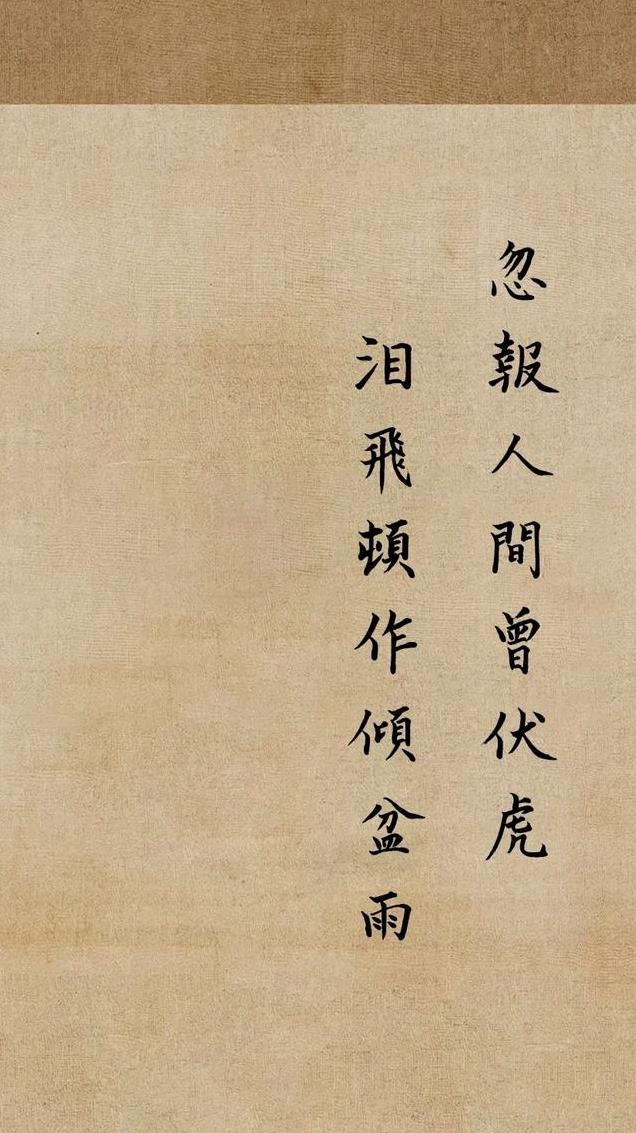 忽報人間曾伏虎
泪飛頓作傾盆雨